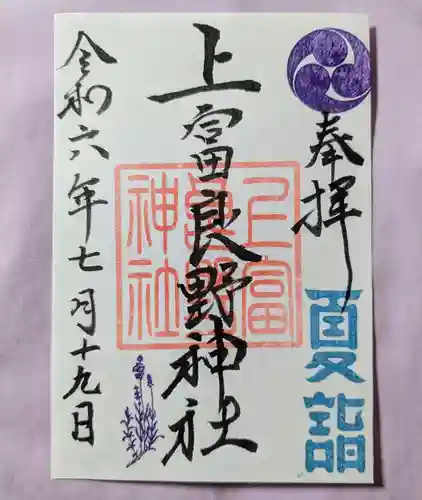 奉拝
夏詣
上富良野神社
上富良野神社
令和六年七月十九日